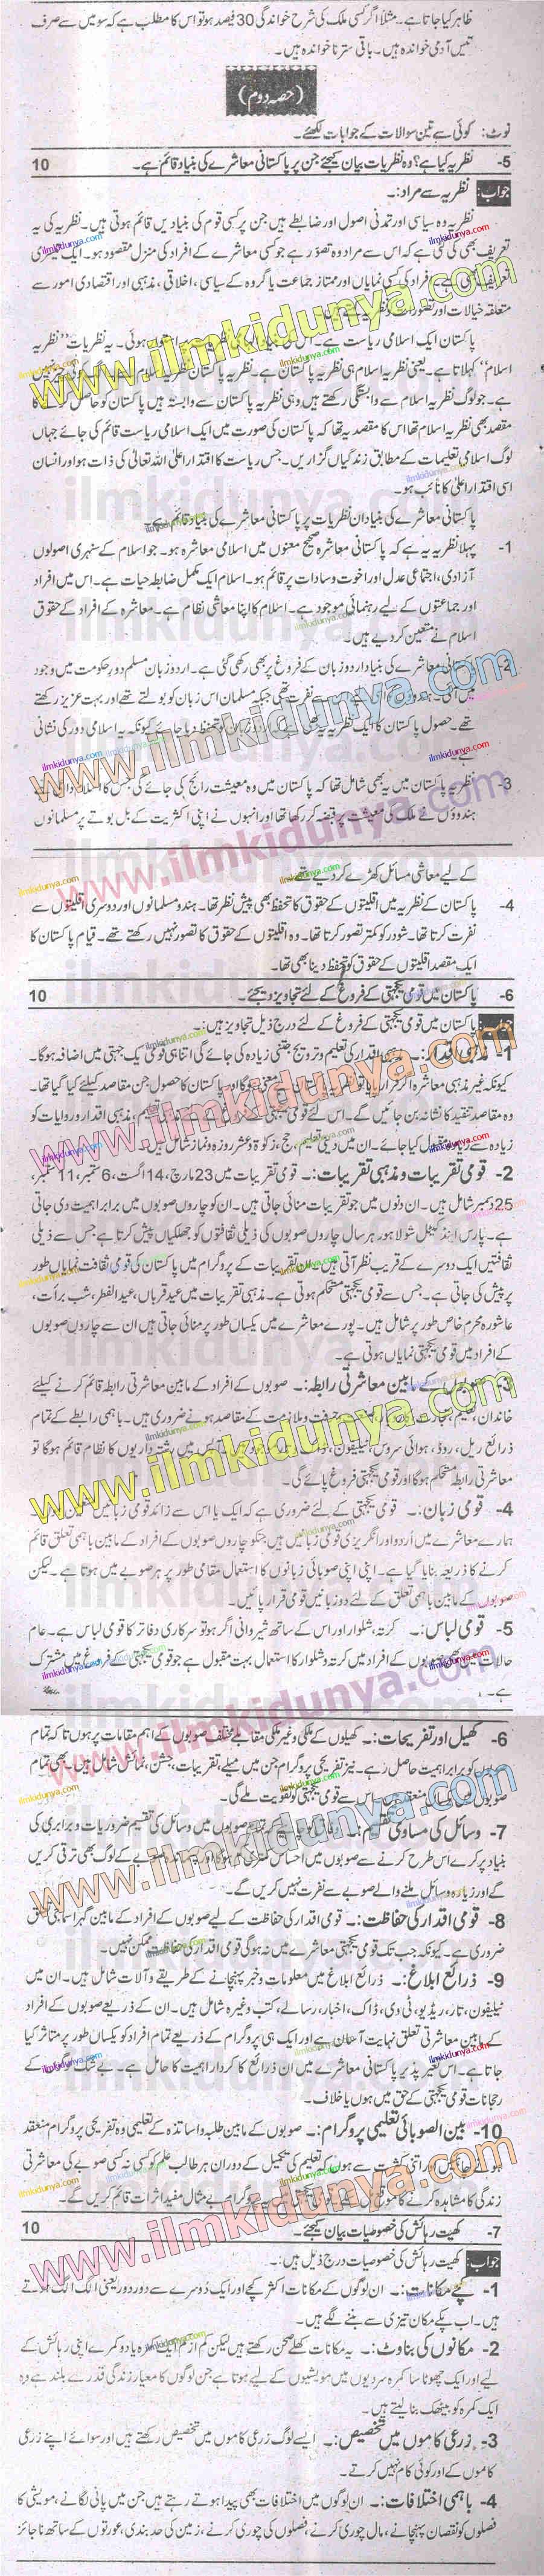 ظاہر کیا جاتا ہے۔ مثلاً اگر کسی ملک کی شرح خواندگی 30 فیصد ہو تو اس کا مطلب ہے کہ سو میں سے صرف
تیس آدمی خواندہ ہیں۔ باقی ستر نا خواندہ ہیں۔
(حصہ دوم)
نوٹ: کوئی سے تین سوالات کے جوابات لکھئے۔
5- نظریہ کیا ہے؟ وہ نظریات بیان کیجئے جن پر پاکستانی معاشرے کی بنیاد قائم ہے۔ 10
جواب: نظریہ سے مراد:۔
نظریہ وہ سیاسی اور تمدنی اصول اور ضابطے ہیں جن پر کسی قوم کی بنیادیں قائم ہوتی ہیں۔ نظریہ کی یہ
تعریف بھی کی گئی ہے کہ اس سے مراد وہ تصور ہے جو کسی معاشرے کے افراد کی منزل مقصود ہو۔ ایک
افراد کی کسی نمایاں اور ممتاز جماعت یا گروہ کے سیاسی، اخلاقی، مذہبی اور اقتصادی امور سے
متعلقہ خیالات اور تصورات
پاکستان ایک اسلامی ریاست ہے۔ یہ نظریات ’’نظریہ
اسلام‘‘ کہلاتا ہے۔ یعنی نظریہ اسلام ہی نظریہ پاکستان ہے۔ نظریہ پاکستان
ہے۔ جو لوگ نظریہ اسلام سے وابستگی رکھتے ہیں وہی نظریہ پاکستان سے وابستہ ہیں پاکستان کو حاصل کرنے کا
مقصد بھی نظریہ اسلام تھا اس کا مقصد یہ تھا کہ پاکستان کی صورت میں ایک اسلامی ریاست قائم کی جائے جہاں
لوگ اسلامی تعلیمات کے مطابق زندگیاں گزاریں۔ جس ریاست کا اقتدار اعلیٰ اللہ تعالیٰ کی ذات ہو اور انسان
اسی اقتدار اعلیٰ کا نائب ہو۔
پاکستانی معاشرے کی بنیاد ان نظریات پر پاکستانی معاشرے کی بنیاد قائم ہے۔
1- پہلا نظریہ یہ ہے کہ پاکستانی معاشرہ صحیح معنوں میں اسلامی معاشرہ ہو۔ جو اسلام کے سنہری اصولوں
آزادی، اجتماعی عدل اور اخوت و مساوات پر قائم ہو۔ اسلام ایک مکمل ضابطہ حیات ہے۔ اس میں افراد
اور جماعتوں کے لیے رہنمائی موجود ہے۔ اسلام کا اپنا معاشی نظام ہے۔ معاشرہ کے افراد کے حقوق
اسلام نے متعین کر دیے ہیں۔
2- پاکستانی معاشرے کی بنیاد اردو زبان کے فروغ پر بھی رکھی گئی ہے۔ اردو زبان مسلم دور حکومت میں وجود
میں آئی۔ نفرت تھی جبکہ مسلمان اس زبان کو بولتے تھے اور بہت عزیز رکھتے
تھے۔ حصول پاکستان کا ایک نظریہ یہ بھی تحفظ دیا جائے کیونکہ یہ اسلامی دور کی نشانی
ہے۔
3- نظریہ پاکستان میں یہ بھی شامل تھا کہ پاکستان میں وہ معیشت رائج کی جائے گی
ہندوؤں نے ملک کی معیشت پر قبضہ کر رکھا تھا اور انہوں نے اپنی اکثریت کے بل بوتے پر مسلمانوں
کے لیے معاشی مسائل کھڑے کر دیے تھے۔
4- پاکستان کے نظریہ میں اقلیتوں کے حقوق کا تحفظ بھی پیش نظر تھا۔ ہندو مسلمانوں اور دوسری اقلیتوں سے
نفرت کرتا تھا۔ شودر کو کمتر تصور کرتا تھا۔ وہ اقلیتوں کے حقوق کا تصور نہیں رکھتے تھے۔ قیام پاکستان کا
ایک مقصد اقلیتوں کے حقوق کو تحفظ دینا بھی تھا۔
6- پاکستان میں قومی یکجہتی کے فروغ کے لئے تجاویز دیجئے۔ 10
جواب: پاکستان میں قومی یکجہتی کے فروغ کے لئے درج ذیل تجاویز ہیں
1- اقدار کی تعلیم و ترویج جتنی زیادہ کی جائے گی اتنا ہی قومی یک جہتی میں اضافہ ہوگا۔
کیونکہ غیر مذہبی معاشرہ اگر قرار پایا تو نظریہ پاکستان معنی ہوگا اور پاکستان کا حصول جن مقاصد کیلئے کیا گیا تھا۔
وہ مقاصد تنقید کا نشانہ بن جائیں گے۔ اس لئے قومی یکجہتی مذہبی اقدار و روایات کو
زیادہ سے زیادہ کیا جائے۔ ان میں دینی تعلیم، حج، زکوٰۃ و عشر روزہ و نماز شامل ہیں۔
2- قومی تقریبات و مذہبی تقریبات:۔ قومی تقریبات میں 23 مارچ، 14 اگست، 6 ستمبر، 11 ستمبر،
25 دسمبر شامل ہیں۔ ان دنوں میں جو تقریبات منائی جاتی ہیں۔ ان کو چاروں صوبوں میں برابر اہمیت دی جاتی
ہے۔ ہارس اینڈ کیٹل شو لاہور ہر سال چاروں صوبوں کی ذیلی ثقافتوں کو جھلکیاں پیش کرتا ہے جس سے ذیلی
ثقافتیں ایک دوسرے کے قریب نظر آتی ہیں تقریبات کے پروگرام میں پاکستان کی قومی ثقافت نمایاں طور
پر پیش کی جاتی ہے۔ جس سے قومی یکجہتی مستحکم ہوتی ہے۔ مذہبی تقریبات میں عید قرباں، عید الفطر، شب برأت،
عاشورہ محرم خاص طور پر شامل ہیں۔ پورے معاشرے میں یکساں طور پر منائی جاتی ہیں ان سے چاروں صوبوں
کے افراد میں قومی یکجہتی نمایاں ہوتی ہے۔
3- صوبوں کے مابین معاشرتی رابطہ:۔ صوبوں کے افراد کے مابین معاشرتی رابطہ قائم کرنے کیلئے
خاندان، تعلیم، تجارت و ملازمت کے مقاصد ہونے ضروری ہیں۔ باہمی رابطے کے تمام
ذرائع ریل، روڈ، ہوائی سروس، ٹیلیفون، میں رشتہ داریوں کا نظام قائم ہوگا تو
معاشرتی رابطہ مستحکم ہوگا اور قومی یکجہتی فروغ پائے گی۔
4- قومی زبان:۔ قومی یکجہتی کے لئے ضروری ہے کہ ایک یا اس سے زائد قومی زبانیں
ہمارے معاشرے میں اُردو اور انگریزی قومی زبانیں ہیں جنکو چاروں صوبوں کے افراد کے مابین باہمی تعلق قائم
کرنے کا ذریعہ بنایا گیا ہے۔ اپنی اپنی صوبائی زبانوں کا استعمال مقامی طور پر ہر صوبے میں ہوتا ہے۔ لیکن
صوبوں کے مابین باہمی تعلق کے لئے دو زبانیں قومی قرار پائیں۔
5- قومی لباس:۔ کرتہ، شلوار اور اس کے ساتھ شیروانی اگر ہو تو سرکاری دفاتر کا قومی لباس ہے۔ عام
حالات میں صوبوں کے افراد میں کرتہ و شلوار کا استعمال بہت مقبول ہے جو قومی یکجہتی کے فروغ میں مشترک
ہے۔
6- کھیل اور تفریحات:۔ کھیلوں کے ملکی و غیر ملکی مقابلے مختلف صوبوں کے اہم مقامات پر ہوں تاکہ تمام
کو برابر اہمیت حاصل رہے۔ نیز تفریحی پروگرام جن میں میلے، تقریبات، جشن، نمائش شامل ہیں۔ بھی تمام
صوبوں میں اس سے قومی یکجہتی کو تقویت ملے گی۔
7- وسائل کی مساوی تقسیم صوبوں میں وسائل کی تقسیم ضروریات و برابری کی
بنیاد پر کرے اس طرح کرنے سے صوبوں میں احساس صوبے کے لوگ بھی ترقی کریں
گے اور زیادہ وسائل ملنے والے صوبے سے نفرت نہیں کریں گے۔
8- قومی اقدار کی حفاظت:۔ قومی اقدار کی حفاظت کے لیے صوبوں کے افراد کے مابین گہرا سماجی تعلق
ضروری ہے۔ کیونکہ جب تک قومی یکجہتی معاشرے میں نہ ہوگی قومی اقدار کی حفاظت ممکن نہیں۔
9- ذرائع ابلاغ:۔ ذرائع ابلاغ میں معلومات و خبر پہنچانے کے طریقے و آلات شامل ہیں۔ ان میں
ٹیلیفون، تار، ریڈیو، ٹی وی، ڈاک، اخبار، رسالے، کتب وغیرہ شامل ہیں۔ ان کے ذریعے صوبوں کے افراد
کے مابین معاشرتی تعلق نہایت آسان ہے اور ایک ہی پروگرام کے ذریعے تمام افراد کو یکساں طور پر متاثر کیا
جاتا ہے۔ اس تغیر پذیر پاکستانی معاشرے میں ان ذرائع کا کردار اہمیت کا حامل ہے۔ بے شک لوگوں کے
رجحانات قومی یکجہتی کے حق میں ہوں یا خلاف۔
10- بین الصوبائی تعلیمی پروگرام:۔ صوبوں کے مابین طلبہ و اساتذہ کے تعلیمی و تفریحی پروگرام منعقد
اور اتنی کثرت سے ہوں کہ تعلیم کی تکمیل کے دوران ہر طالب علم کو کسی نہ کسی صوبے کی معاشرتی
زندگی کا مشاہدہ کرنے کا موقع بے مثال مفید اثرات قائم کریں گے۔
7- کھیت رہائش کی خصوصیات بیان کیجئے۔ 10
جواب: کھیت رہائش کی خصوصیات درج ذیل ہیں:۔
1- کچے مکانات:۔ ان لوگوں کے مکانات اکثر کچے اور ایک دُوسرے سے دور دور یعنی الگ الگ ہوتے
ہیں۔ اب پکے مکان تیزی سے بننے لگے ہیں۔
2- مکانوں کی بناوٹ:۔ یہ مکانات کھلے صحن رکھتے ہیں لیکن کم از کم ایک یا دو کمرے اپنی رہائش کے
لیے اور ایک چھوٹا سا کمرہ سردیوں میں مویشیوں کے لیے ہوتا ہے جن لوگوں کا معیار زندگی قدرے بلند ہے وہ
ایک کمرہ کو بیٹھک بنا لیتے ہیں۔
3- زرعی کاموں میں تخصیص:۔ ایسے لوگ زرعی کاموں میں تخصیص رکھتے ہیں اور سوائے اپنے زرعی
کاموں کے اور کوئی کام نہیں کرتے۔
4- باہمی اختلافات:۔ ان لوگوں میں اختلافات بھی پیدا ہوتے رہتے ہیں جن میں پانی لگانے، مویشی کا
فصلوں کو نقصان پہنچانے، مال چوری کرنے، فصلوں کی چوری کرنے، زمین کی حد بندی، عورتوں کے ساتھ ناجائز
www.ilmkidunya.com
ilmkidunya.com